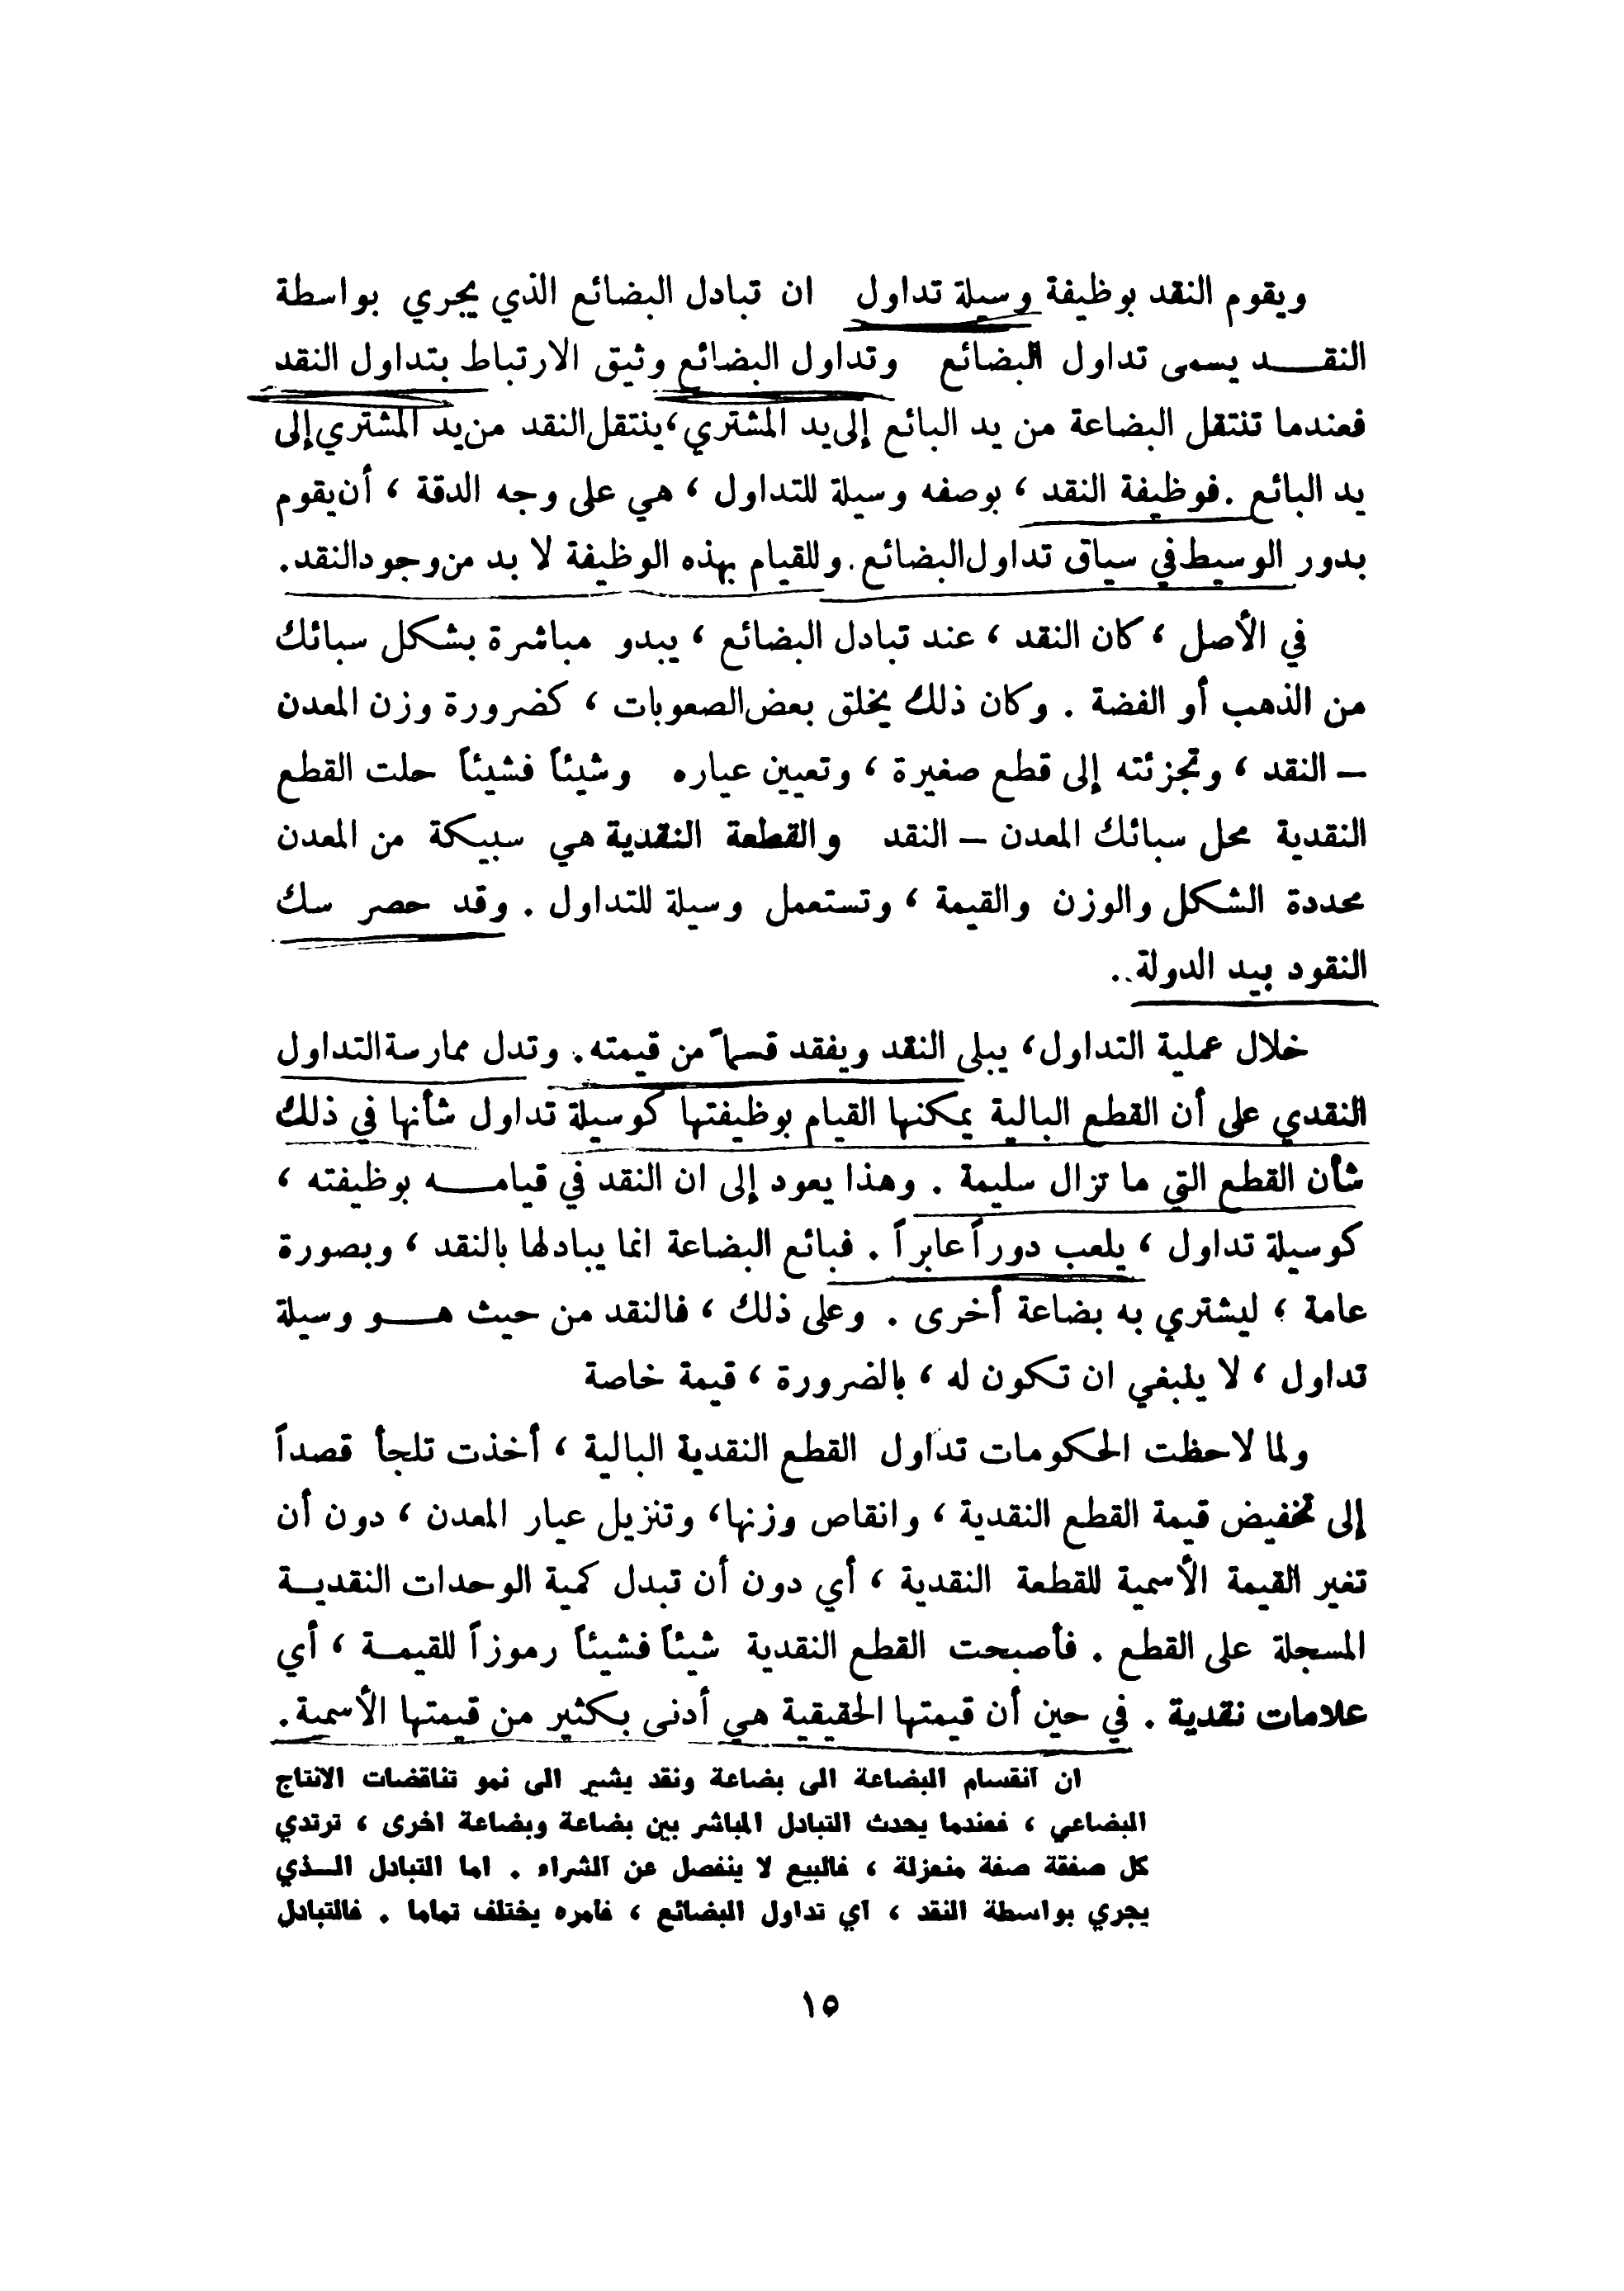 ويقوم النقد بوظيفة وسيلة تداول ان تبادل البضائع الذي يجري بواسطة
النقـــد يسمى تداول البضائع وتداول البضائع وثيق الارتباط بتداول النقد
فعندما تنتقل البضاعة من يد البائع إلى يد المشتري، ينتقل النقد من يد المشتري إلى
يد البائع . فوظيفة النقد ، بوصفه وسيلة للتداول ، هي على وجه الدقة ، أن يقوم
بدور الوسيط في سياق تداول البضائع. وللقيام بهذه الوظيفة لا بد من وجود النقد.
في الأصل ، كان النقد ، عند تبادل البضائع ، يبدو مباشرة بشكل سبائك
من الذهب أو الفضة . وكان ذلك يخلق بعض الصعوبات ، كضرورة وزن المعدن
– النقد ، وتجزئته إلى قطع صغيرة ، وتعيين عياره وشيئاً فشيئاً حلت القطع
النقدية محل سبائك المعدن – النقد والقطعة النقدية هي سبيكة من المعدن
محددة الشكل والوزن والقيمة ، وتستعمل وسيلة للتداول . وقد حصر سك
النقود بيد الدولة..
خلال عملية التداول، يبلى النقد ويفقد قسماً من قيمته. وتدل ممارسة التداول
النقدي على أن القطع البالية يمكنها القيام بوظيفتها كوسيلة تداول شأنها في ذلك
شأن القطع التي ما تزال سليمة . وهذا يعود إلى ان النقد في قيامـــه بوظيفته ،
كوسيلة تداول ، يلعب دوراً عابراً . فبائع البضاعة انما يبادلها بالنقد ، وبصورة
عامة ، ليشتري به بضاعة أخرى . وعلى ذلك ، فالنقد من حيث هـــو وسيلة
تداول ، لا ينبغي ان تكون له ، بالضرورة ، قيمة خاصة
ولما لاحظت الحكومات تداول القطع النقدية البالية ، أخذت تلجأ قصداً
إلى تخفيض قيمة القطع النقدية ، وانقاص وزنها، وتنزيل عيار المعدن ، دون أن
تغير القيمة الأسمية للقطعة النقدية ، أي دون أن تبدل كمية الوحدات النقديـة
المسجلة على القطع . فأصبحت القطع النقدية شيئاً فشيئاً رموزاً للقيمـة ، أي
علامات نقدية . في حين أن قيمتها الحقيقية هي أدنى بكثير من قيمتها الأسمية.
ان انقسام البضاعة الى بضاعة ونقد يشير الى نمو تناقضات الانتاج
البضاعي ، فعندما يحدث التبادل المباشر بين بضاعة وبضاعة اخرى ، ترتدي
كل صفقة صفة منعزلة ، فالبيع لا ينفصل عن الشراء . اما التبادل الـذي
يجري بواسطة النقد ، اي تداول البضائع ، فامره يختلف تماما . فالتبادل
١٥